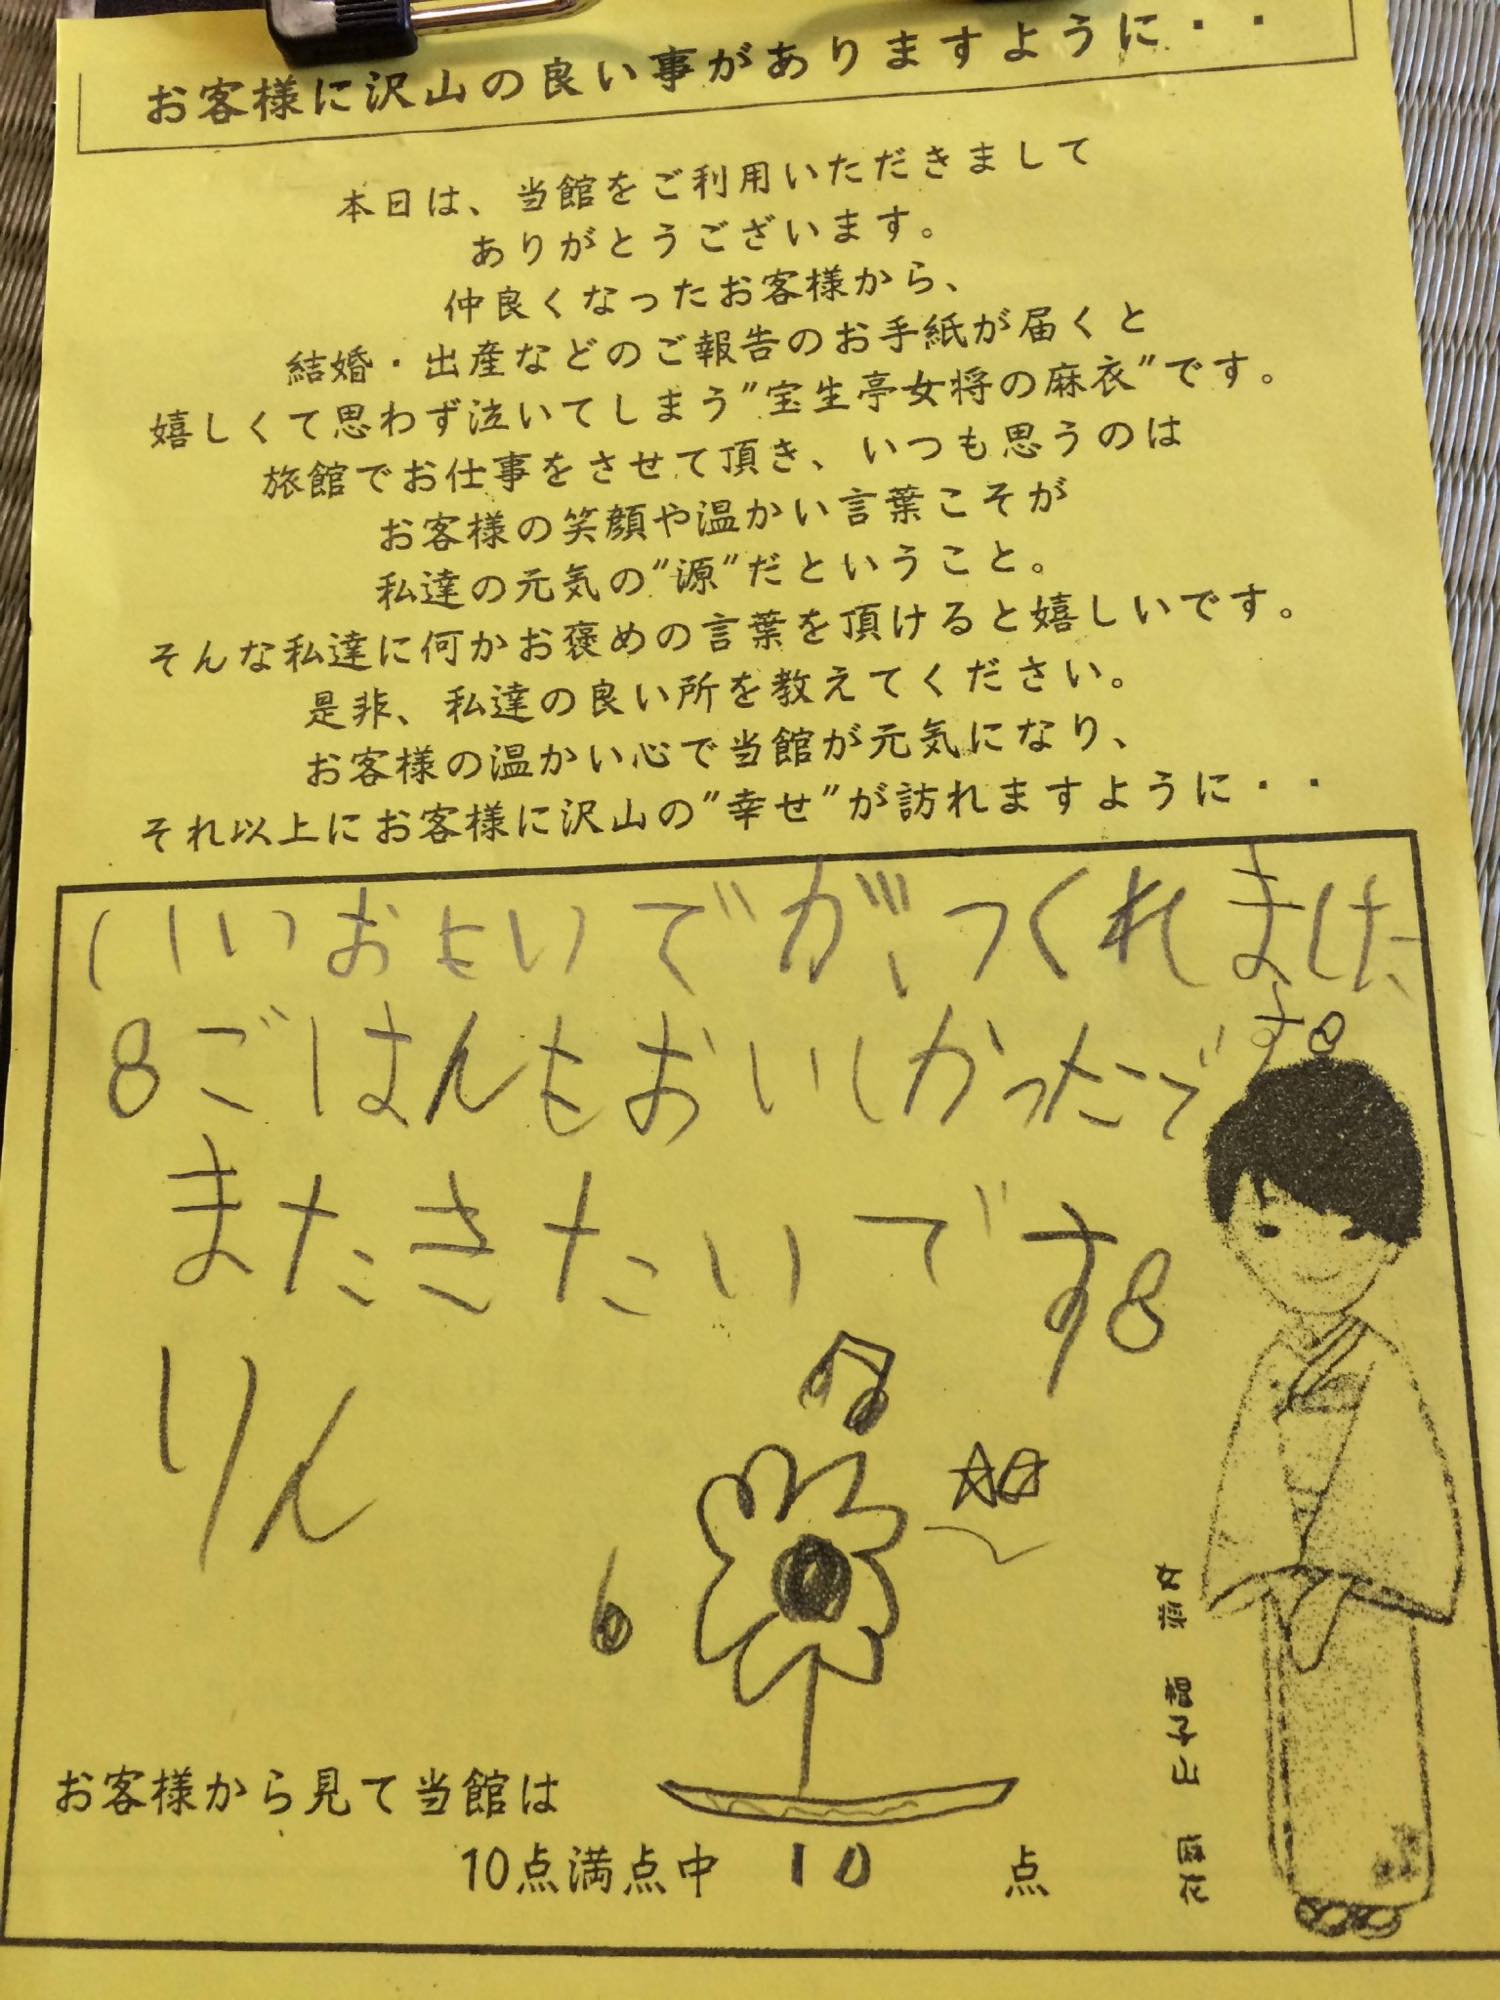 お客様に沢山の良い事がありますように・・
本日は、当館をご利用いただきまして
ありがとうございます。
仲良くなったお客様から、
結婚・出産などのご報告のお手紙が届くと
嬉しくて思わず泣いてしまう"宝生亭女将の麻衣"です。
旅館でお仕事をさせて頂き、いつも思うのは
お客様の笑顔や温かい言葉こそが
私達の元気の"源"だということ。
そんな私達に何かお褒めの言葉を頂けると嬉しいです。
是非、私達の良い所を教えてください。
お客様の温かい心で当館が元気になり、
それ以上にお客様に沢山の"幸せ"が訪れますように・・
いいおもいでが、つくれました
8ごはんもおいしかったです8
またきたいです8
りん
6
女将 帽子山 麻衣
お客様から見て当館は
10点満点中 10 点